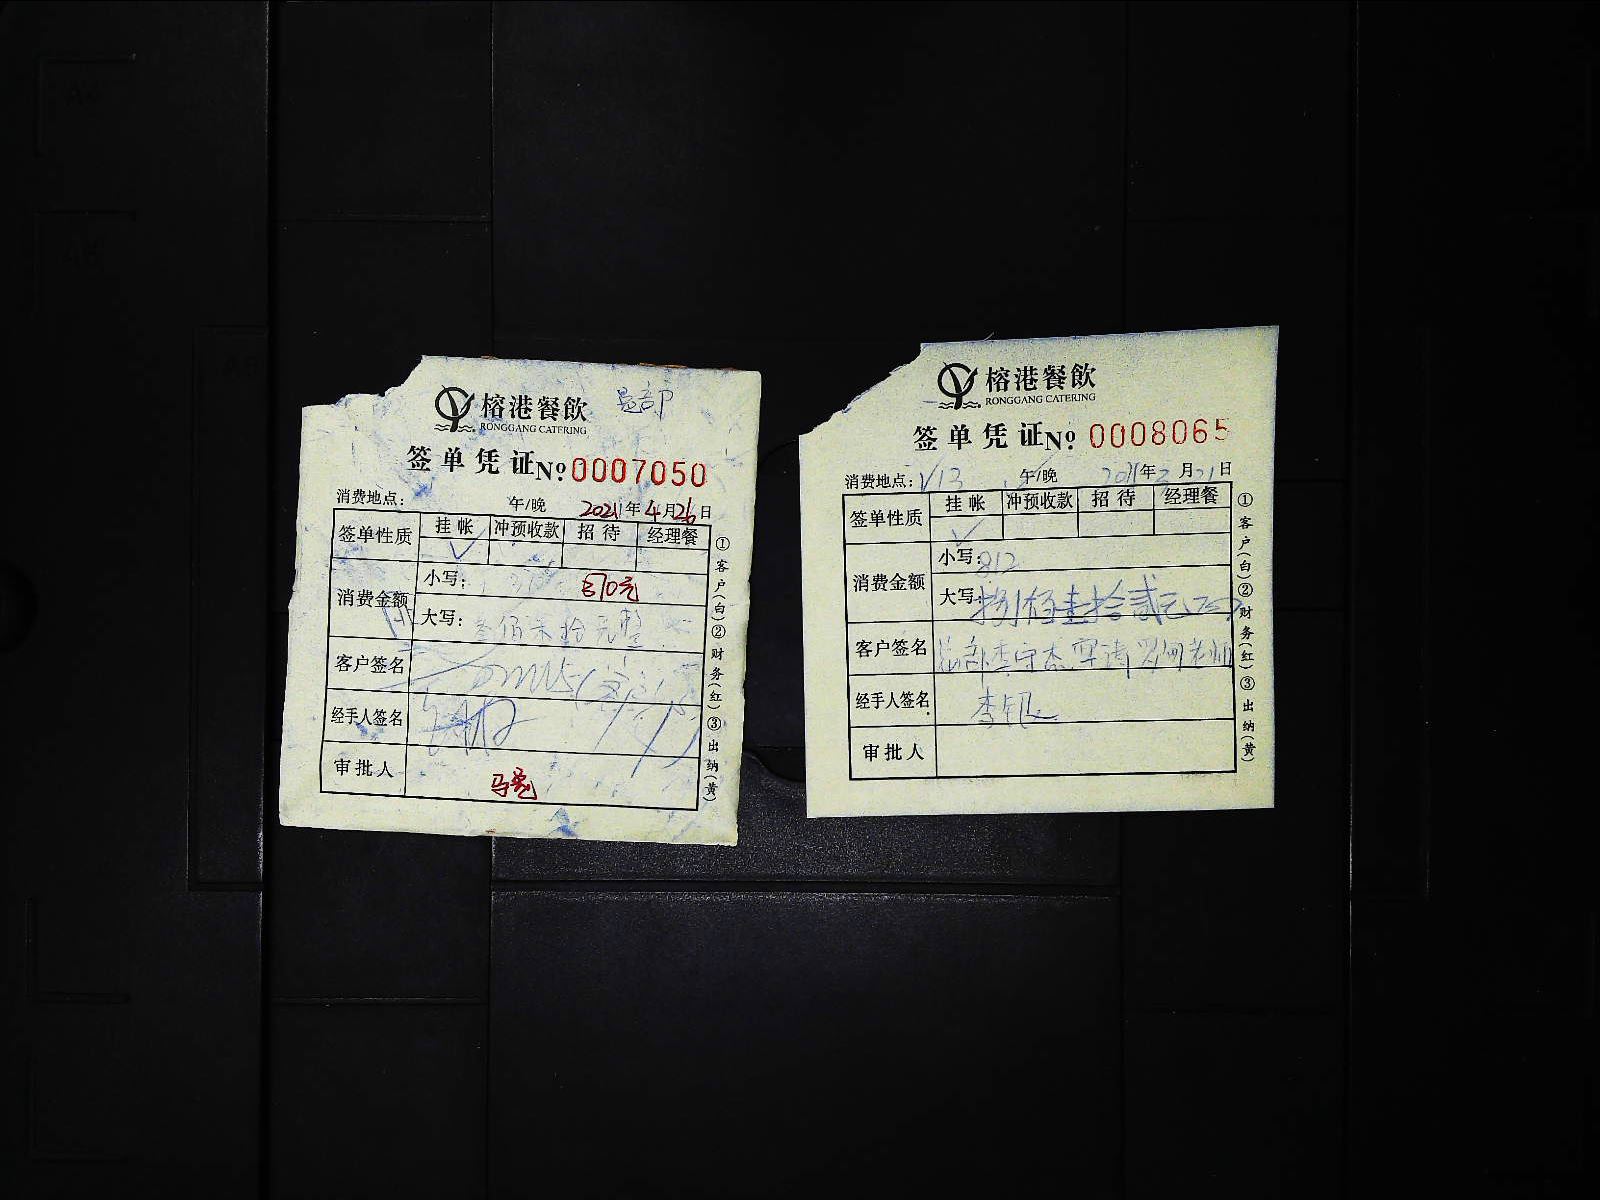 榕港餐飲
RONGGANG CATERING
签单凭证 No 0007050
消费地点: 午/晚 2021年4月26日
签单性质 挂帐 冲预收款 招待 经理餐
✓
消费金额 小写: 370元
大写: 叁佰柒拾元整
客户签名
经手人签名
审批人
①客户(白)②财务(红)③出纳(黄)
榕港餐飲
RONGGANG CATERING
签单凭证 No 0008065
消费地点: V13 午/晚 年 月21日
签单性质 挂帐 冲预收款 招待 经理餐
✓
消费金额 小写: 812
大写: 捌佰壹拾贰元
客户签名 李守杰
经手人签名 李银
审批人
①客户(白)②财务(红)③出纳(黄)